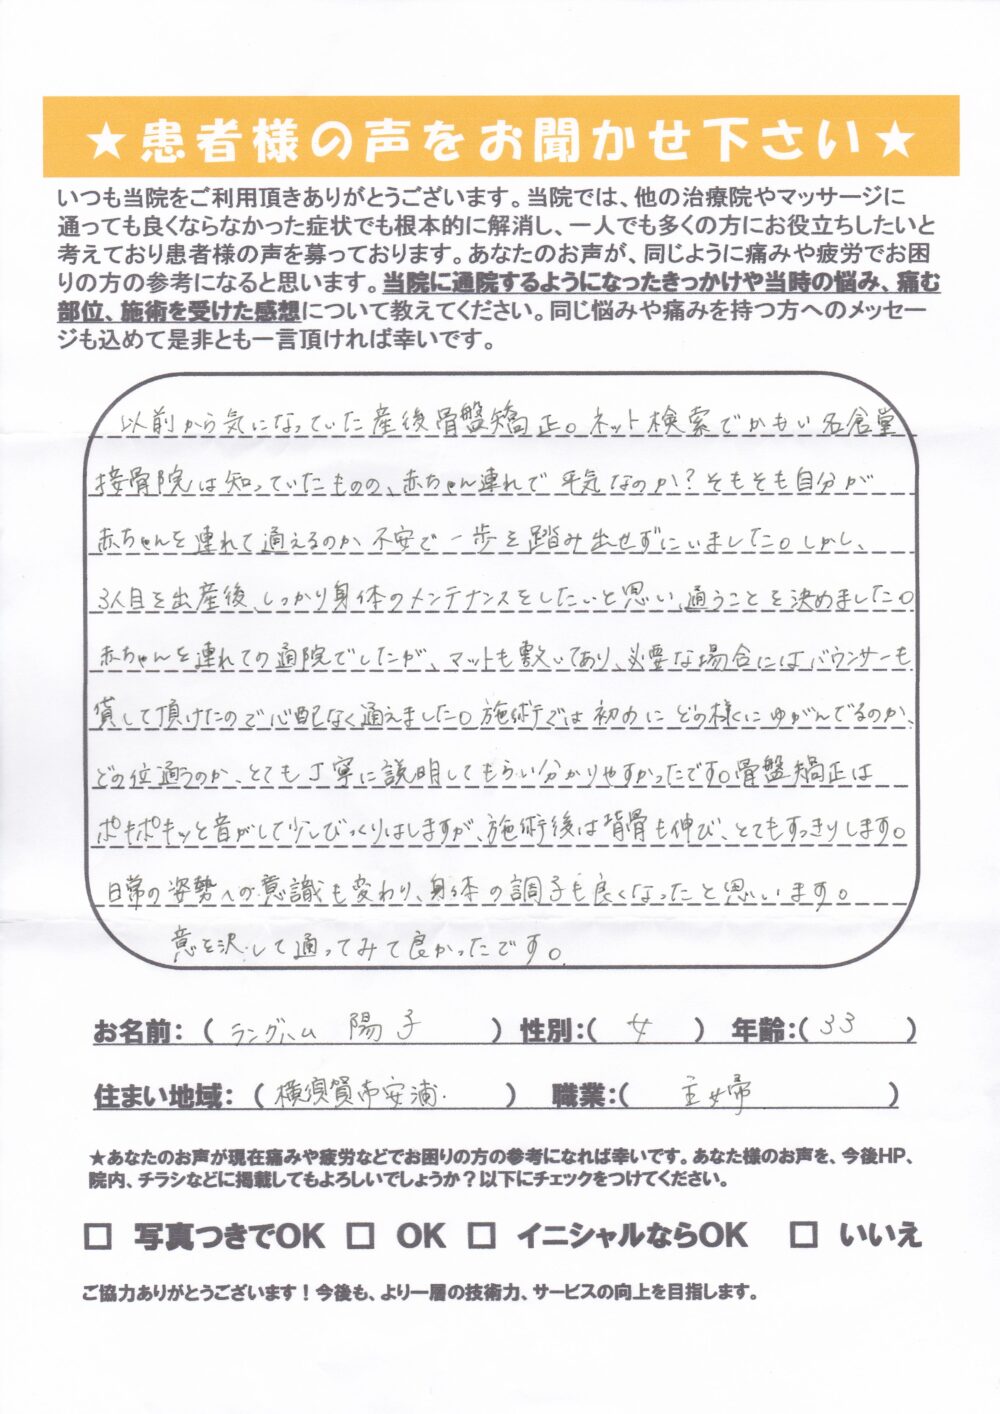 ★患者様の声をお聞かせ下さい★
いつも当院をご利用頂きありがとうございます。当院では、他の治療院やマッサージに
通っても良くならなかった症状でも根本的に解消し、一人でも多くの方にお役立ちしたいと
考えており患者様の声を募っております。あなたのお声が、同じように痛みや疲労でお困
りの方の参考になると思います。当院に通院するようになったきっかけや当時の悩み、痛む
部位、施術を受けた感想について教えてください。同じ悩みや痛みを持つ方へのメッセー
ジも込めて是非とも一言頂ければ幸いです。
以前から気になっていた産後骨盤矯正。ネット検索でかもい名倉堂
接骨院は知っていたものの、赤ちゃん連れで平気なのか?そもそも自分が
赤ちゃんを連れて通えるのか不安で一歩を踏み出せずにいました。しかし、
3人目を出産後、しっかり身体のメンテナンスをしたいと思い、通うことを決めました。
赤ちゃんを連れての通院でしたが、マットも敷いてあり、必要な場合にはバウンサーも
貸して頂けたので心配なく通えました。施術では初めにどの様にゆがんでるのか、
どの位通うのか、とても丁寧に説明してもらい分かりやすかったです。骨盤矯正は
ポキポキッと音がして少しびっくりはしますが、施術後は背骨も伸び、とてもすっきりします。
日常の姿勢への意識も変わり、身体の調子も良くなったと思います。
意を決して通ってみて良かったです。
お名前:(ラングハム 陽子) 性別:(女) 年齢:(33)
住まい地域:(横須賀市安浦) 職業:(主婦)
★あなたのお声が現在痛みや疲労などでお困りの方の参考になれば幸いです。あなた様のお声を、今後HP、
院内、チラシなどに掲載してもよろしいでしょうか?以下にチェックをつけてください。
□ 写真つきでOK □ OK □ イニシャルならOK □ いいえ
ご協力ありがとうございます!今後も、より一層の技術力、サービスの向上を目指します。